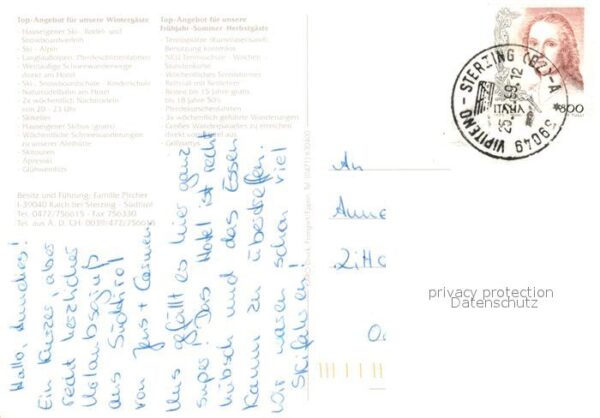 Top-Angebot für unsere Wintergäste
Hauseigener Ski-, Rodel- und
Snowboardverleih
- Ski - Alpin
- Langlaufloipen, Pferdeschlittenfahrten
- Weitläufige Schneewanderwege
direkt am Hotel
- Ski-, Snowboardschule - Kinderschule
- Naturrodelbahn am Hotel
- 2x wöchentlich Nachtrodeln
von 20 - 23 Uhr
Skikeller
Hauseigener Skibus (gratis)
- Wöchentliche Schneewanderungen
zu unserer Almhütte
- Skitouren
- Apreski
- Glühweinfest
Top-Angebot für unsere
Frühjahr-Sommer-Herbstgäste
- Tennisplätze (Kunstrasen/sand),
Benutzung kostenlos
Stundenkurse
- Wöchentliches Tennisturnier
- Reitstall mit Reitlehrer
- Reiten bis 15 Jahre gratis,
bis 18 Jahre 50%
- Pferdekutschenfahrten
- 2x wöchentlich geführte Wanderungen
- Großes Wanderparadies zu erreichen
direkt vom Hotel aus
- Grillpartys
Besitz und Führung: Familie Pircher
I-39040 Kalch bei Sterzing - Südtirol
Tel. 0472/756615 - Fax 756330
Tel. aus A, D, CH: 0039/472/756615
Hallo,
Ein kurzes, aber
recht herzlicher
Urlaubsgruß
aus Südtirol
von Jens + Carmen
Uns gefällt es hier ganz
super! Das Hotel ist recht
hübsch und das Essen
kaum zu übertreffen.
Wir waren schon viel
Skifahren!
39049 VIPITENO - STERZING (BZ) - A
ITALIA
800
An
Anne
Zitt
privacy protection
Datenschutz